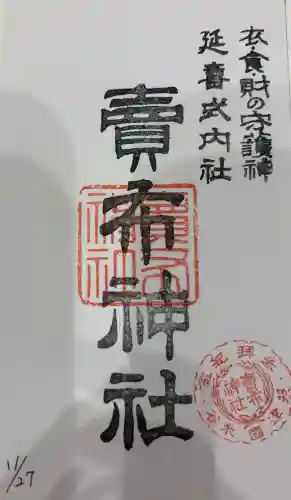 衣食財の守護神
延喜式内社
賣布神社
11/27